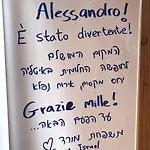 Alessandro!
È stato divertente!
המקום המושלם
לחופשה חלומית באיטליה
יחס מקסים, אירוח נפלא
Grazie Mille!
עד הפעם הבאה...
משפחת מורד
Israel